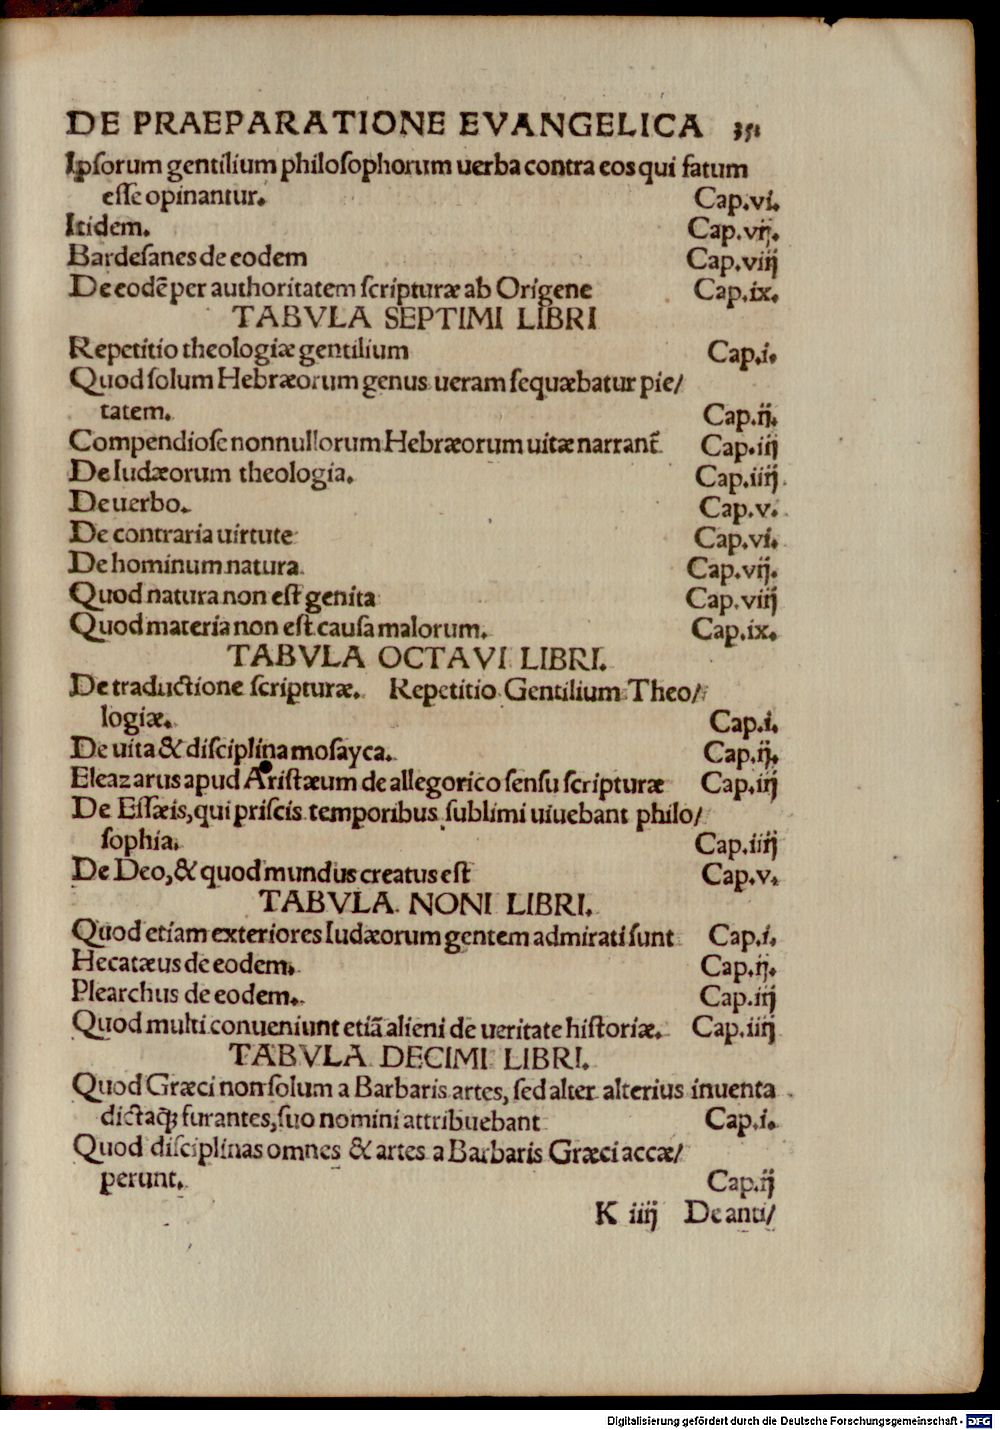 DE PRAEPARATIONE EVANGELICA
Ipsorum gentilium philosophorum uerba contra eos qui fatum
esse opinantur. Cap.vi.
Itidem. Cap.vij.
Bardesanes de eodem Cap.viij
De eodē per authoritatem scripturæ ab Origene Cap.ix.
TABVLA SEPTIMI LIBRI
Repetitio theologiæ gentilium Cap.i.
Quod solum Hebræorum genus ueram sequæbatur pie/
tatem. Cap.ij.
Compendiose nonnullorum Hebræorum uitæ narrant̄ Cap.iij
De Iudæorum theologia. Cap.iiij.
De uerbo. Cap.v.
De contraria uirtute Cap.vi.
De hominum natura. Cap.vij.
Quod natura non est genita Cap.viij
Quod materia non est causa malorum. Cap.ix.
TABVLA OCTAVI LIBRI.
De traductione scripturæ. Repetitio Gentilium Theo/
logiæ. Cap.i.
De uita & disciplina mosayca. Cap.ij.
Eleazarus apud Aristæum de allegorico sensu scripturæ Cap.iij
De Essæis, qui priscis temporibus sublimi uiuebant philo/
sophia. Cap.iiij
De Deo, & quod mundus creatus est Cap.v.
TABVLA NONI LIBRI.
Quod etiam exteriores Iudæorum gentem admirati sunt Cap.i.
Hecatæus de eodem. Cap.ij.
Plearchus de eodem. Cap.iij
Quod multi conueniunt etiā alieni de ueritate historiæ. Cap.iiij
TABVLA DECIMI LIBRI.
Quod Græci non solum a Barbaris artes, sed alter alterius inuenta
dictaq; furantes, suo nomini attribuebant Cap.i.
Quod disciplinas omnes & artes a Barbaris Græci accæ/
perunt. Cap.ij
K iiij De anti/
Digitalisierung gefördert durch die Deutsche Forschungsgemeinschaft - DFG